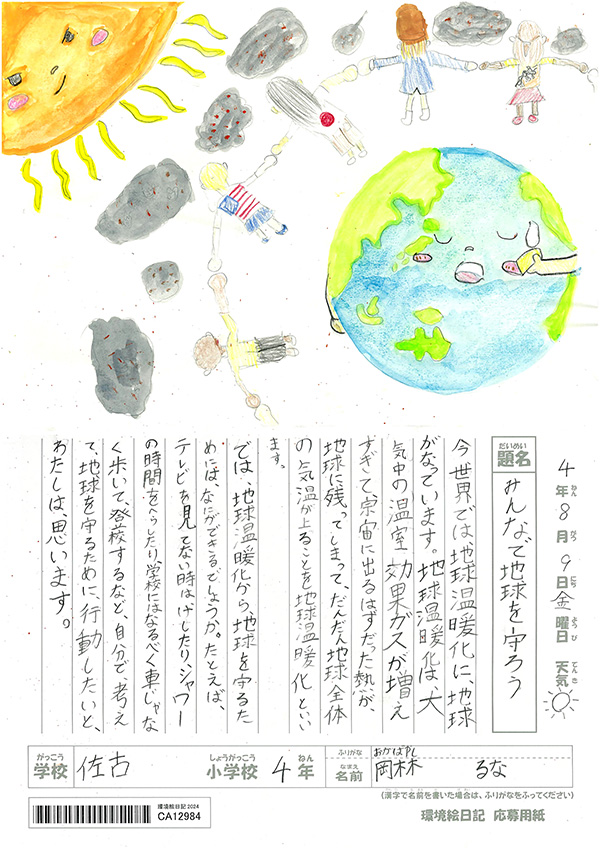 4年8月9日金曜日 天気
ねん がつ にち ようび てんき
だいめい
題名
みんなで地球を守ろう
今世界では地球温暖化に、地球
がなっています。地球温暖化は、大
気中の温室効果ガスが増え
すぎて宇宙に出るはずだった熱が、
地球に残ってしまって、だんだん地球全体
の気温が上ることを地球温暖化といい
ます。
では、地球温暖化から、地球を守るた
めには、なにができるでしょうか。たとえば、
テレビを見てない時はけしたり、シャワー
の時間をへらしたり学校にはなるべく車じゃな
く歩いて、登校するなど、自分で考え
て、地球を守るために、行動したいと、
わたしは、思います。
がっこう しょうがっこう ねん ふりがな おかばやし
学校 佐古 小学校 4年 なまえ 名前 岡林 るな
(漢字で名前を書いた場合は、ふりがなをふってください)
環境絵日記 2024
CA12984
環境絵日記 応募用紙